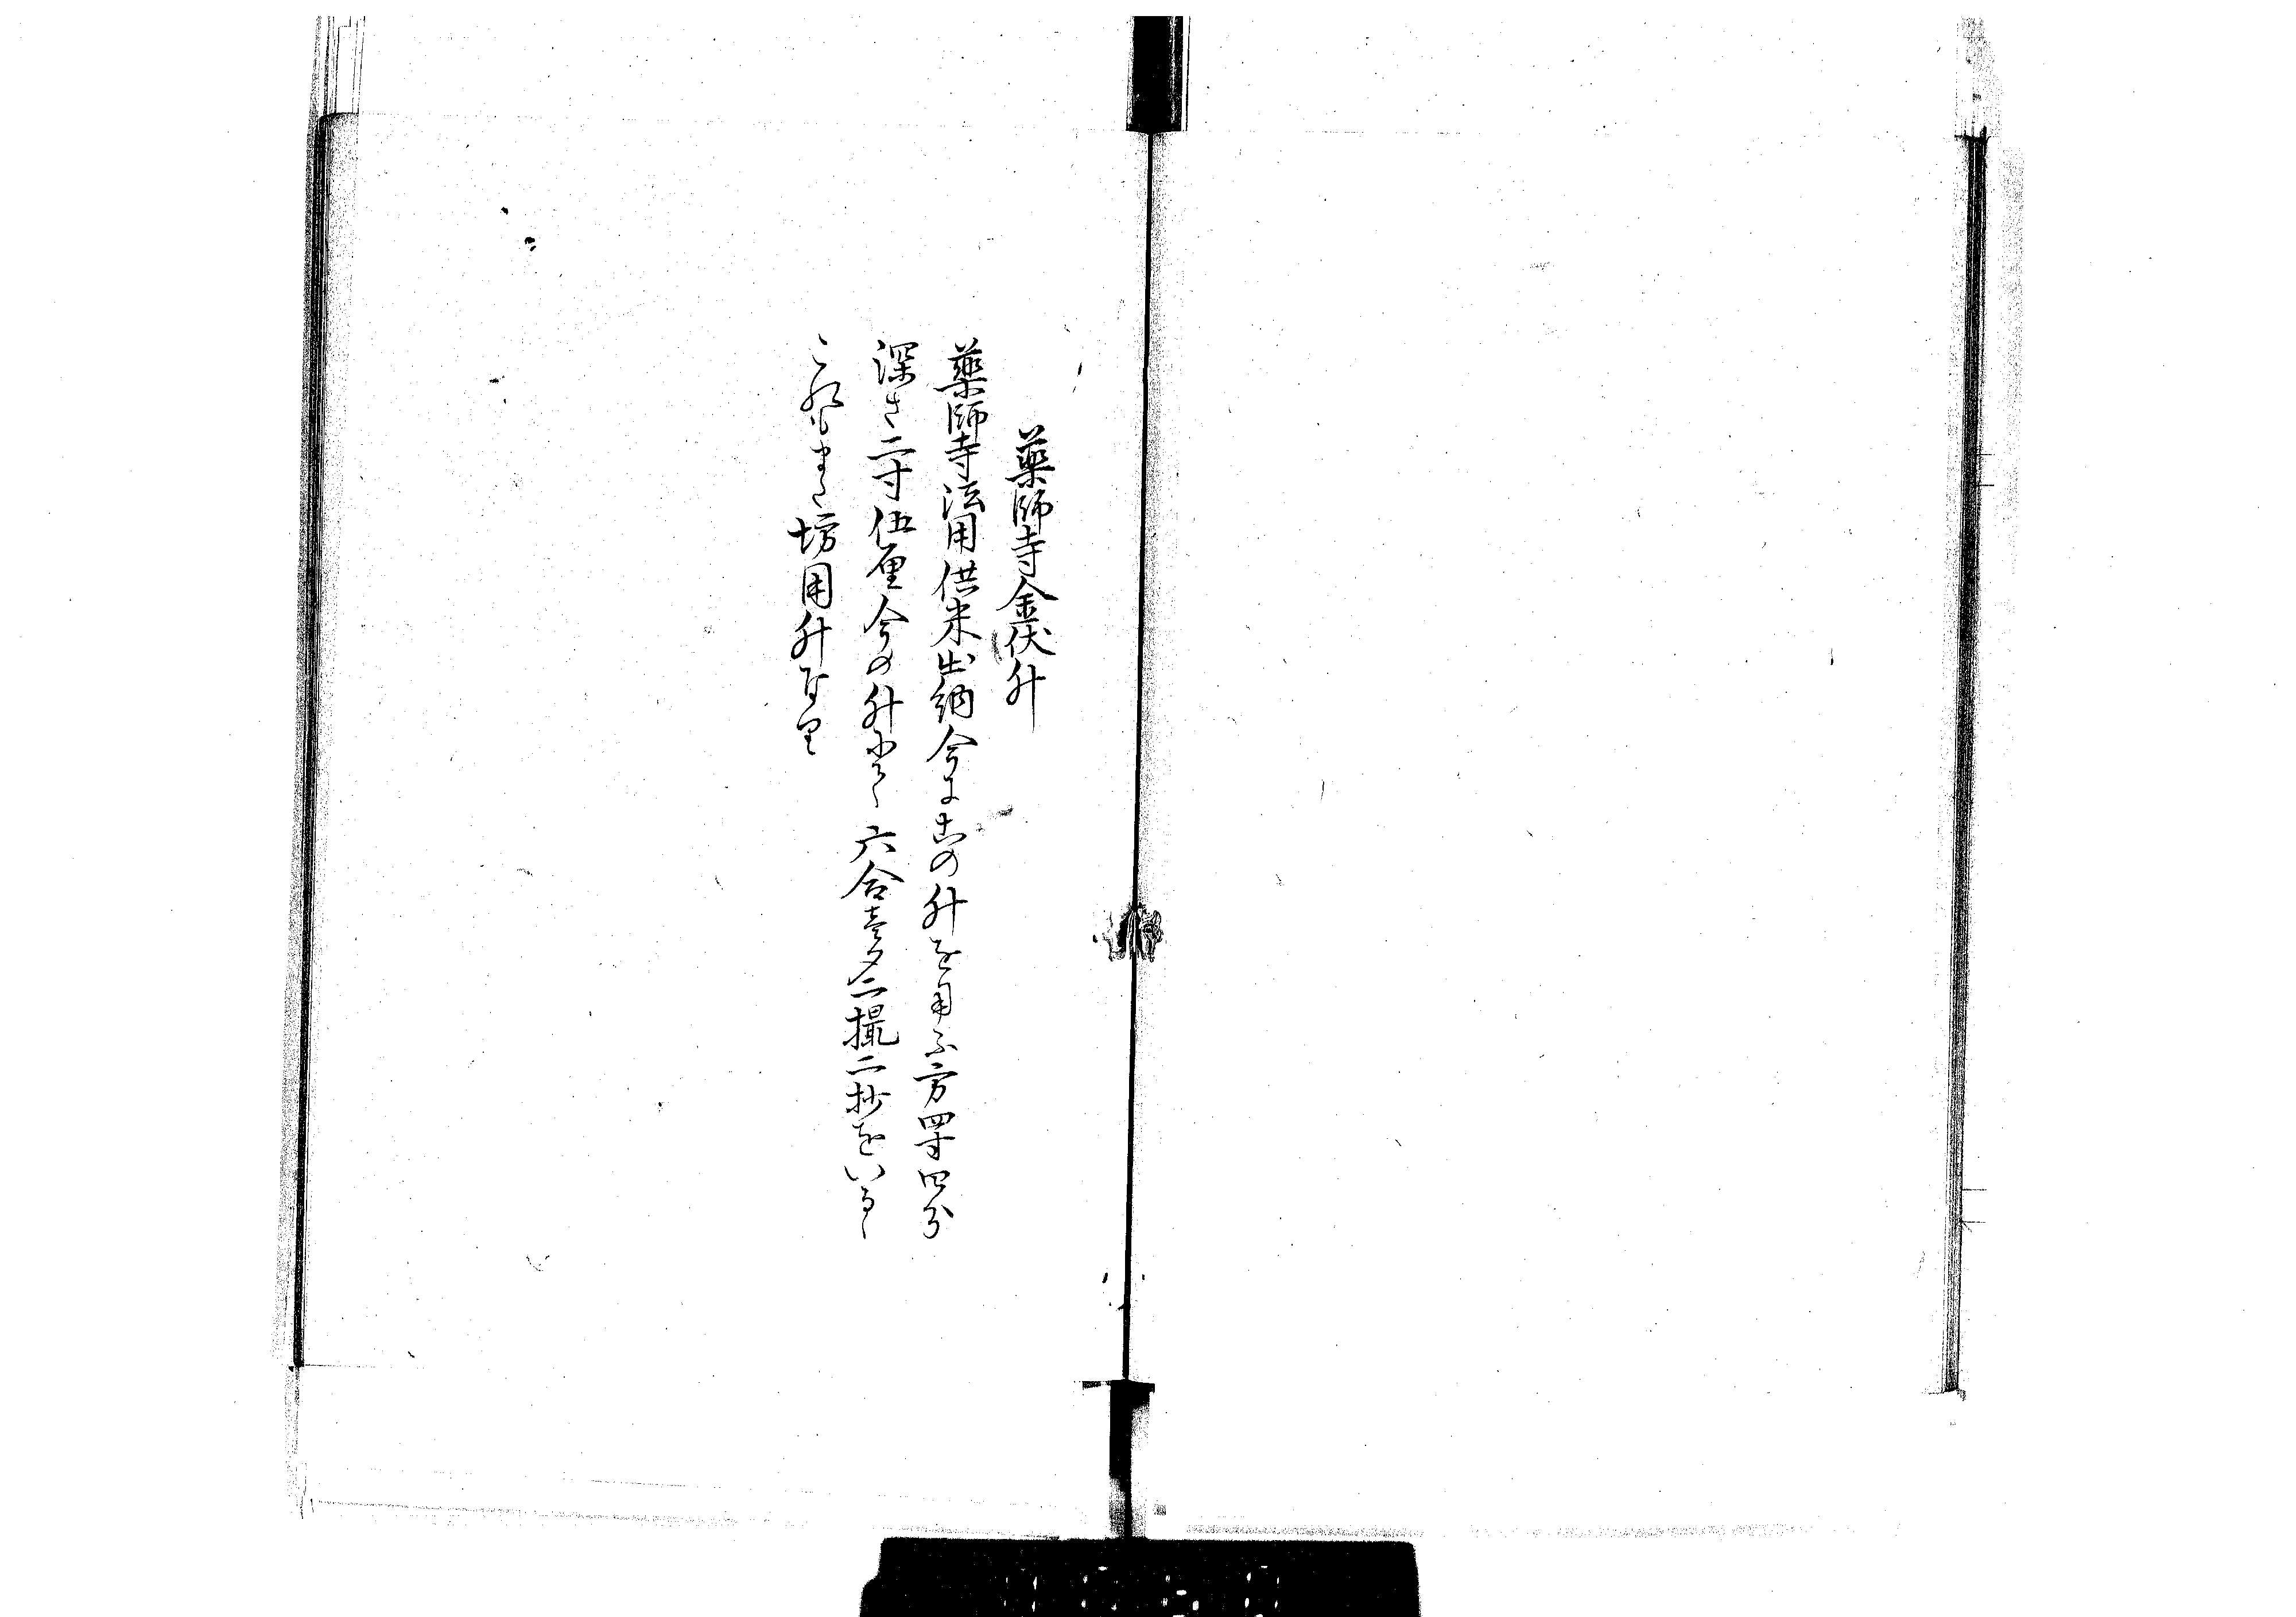 薬師寺金伏升
薬師寺法用供米出納今にこの升を用ふ方四寸四分
深さ二寸伍厘今の升にて六合壱夕二撮二抄をいるゝ
これもまた坊用升なり